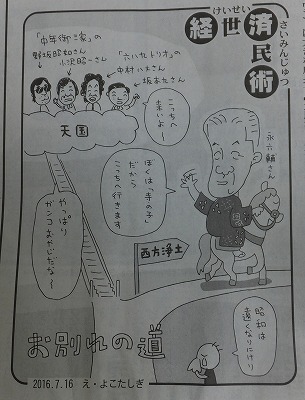 けいせい
さいみんじゅつ
経世済民術
「中年御三家」の
野坂昭如さん
小沢昭一さん
「六八九トリオ」の
中村八大さん
坂本九さん
天国
こっちへ
来いよー
永六輔さん
ぼくは「寺の子」
だから
こっちへ行きます
やっぱり
ガンコ
だな〜
西方浄土
昭和は
遠くなりにけり
お別れの道
2016.7.16 え・よこたしぎ